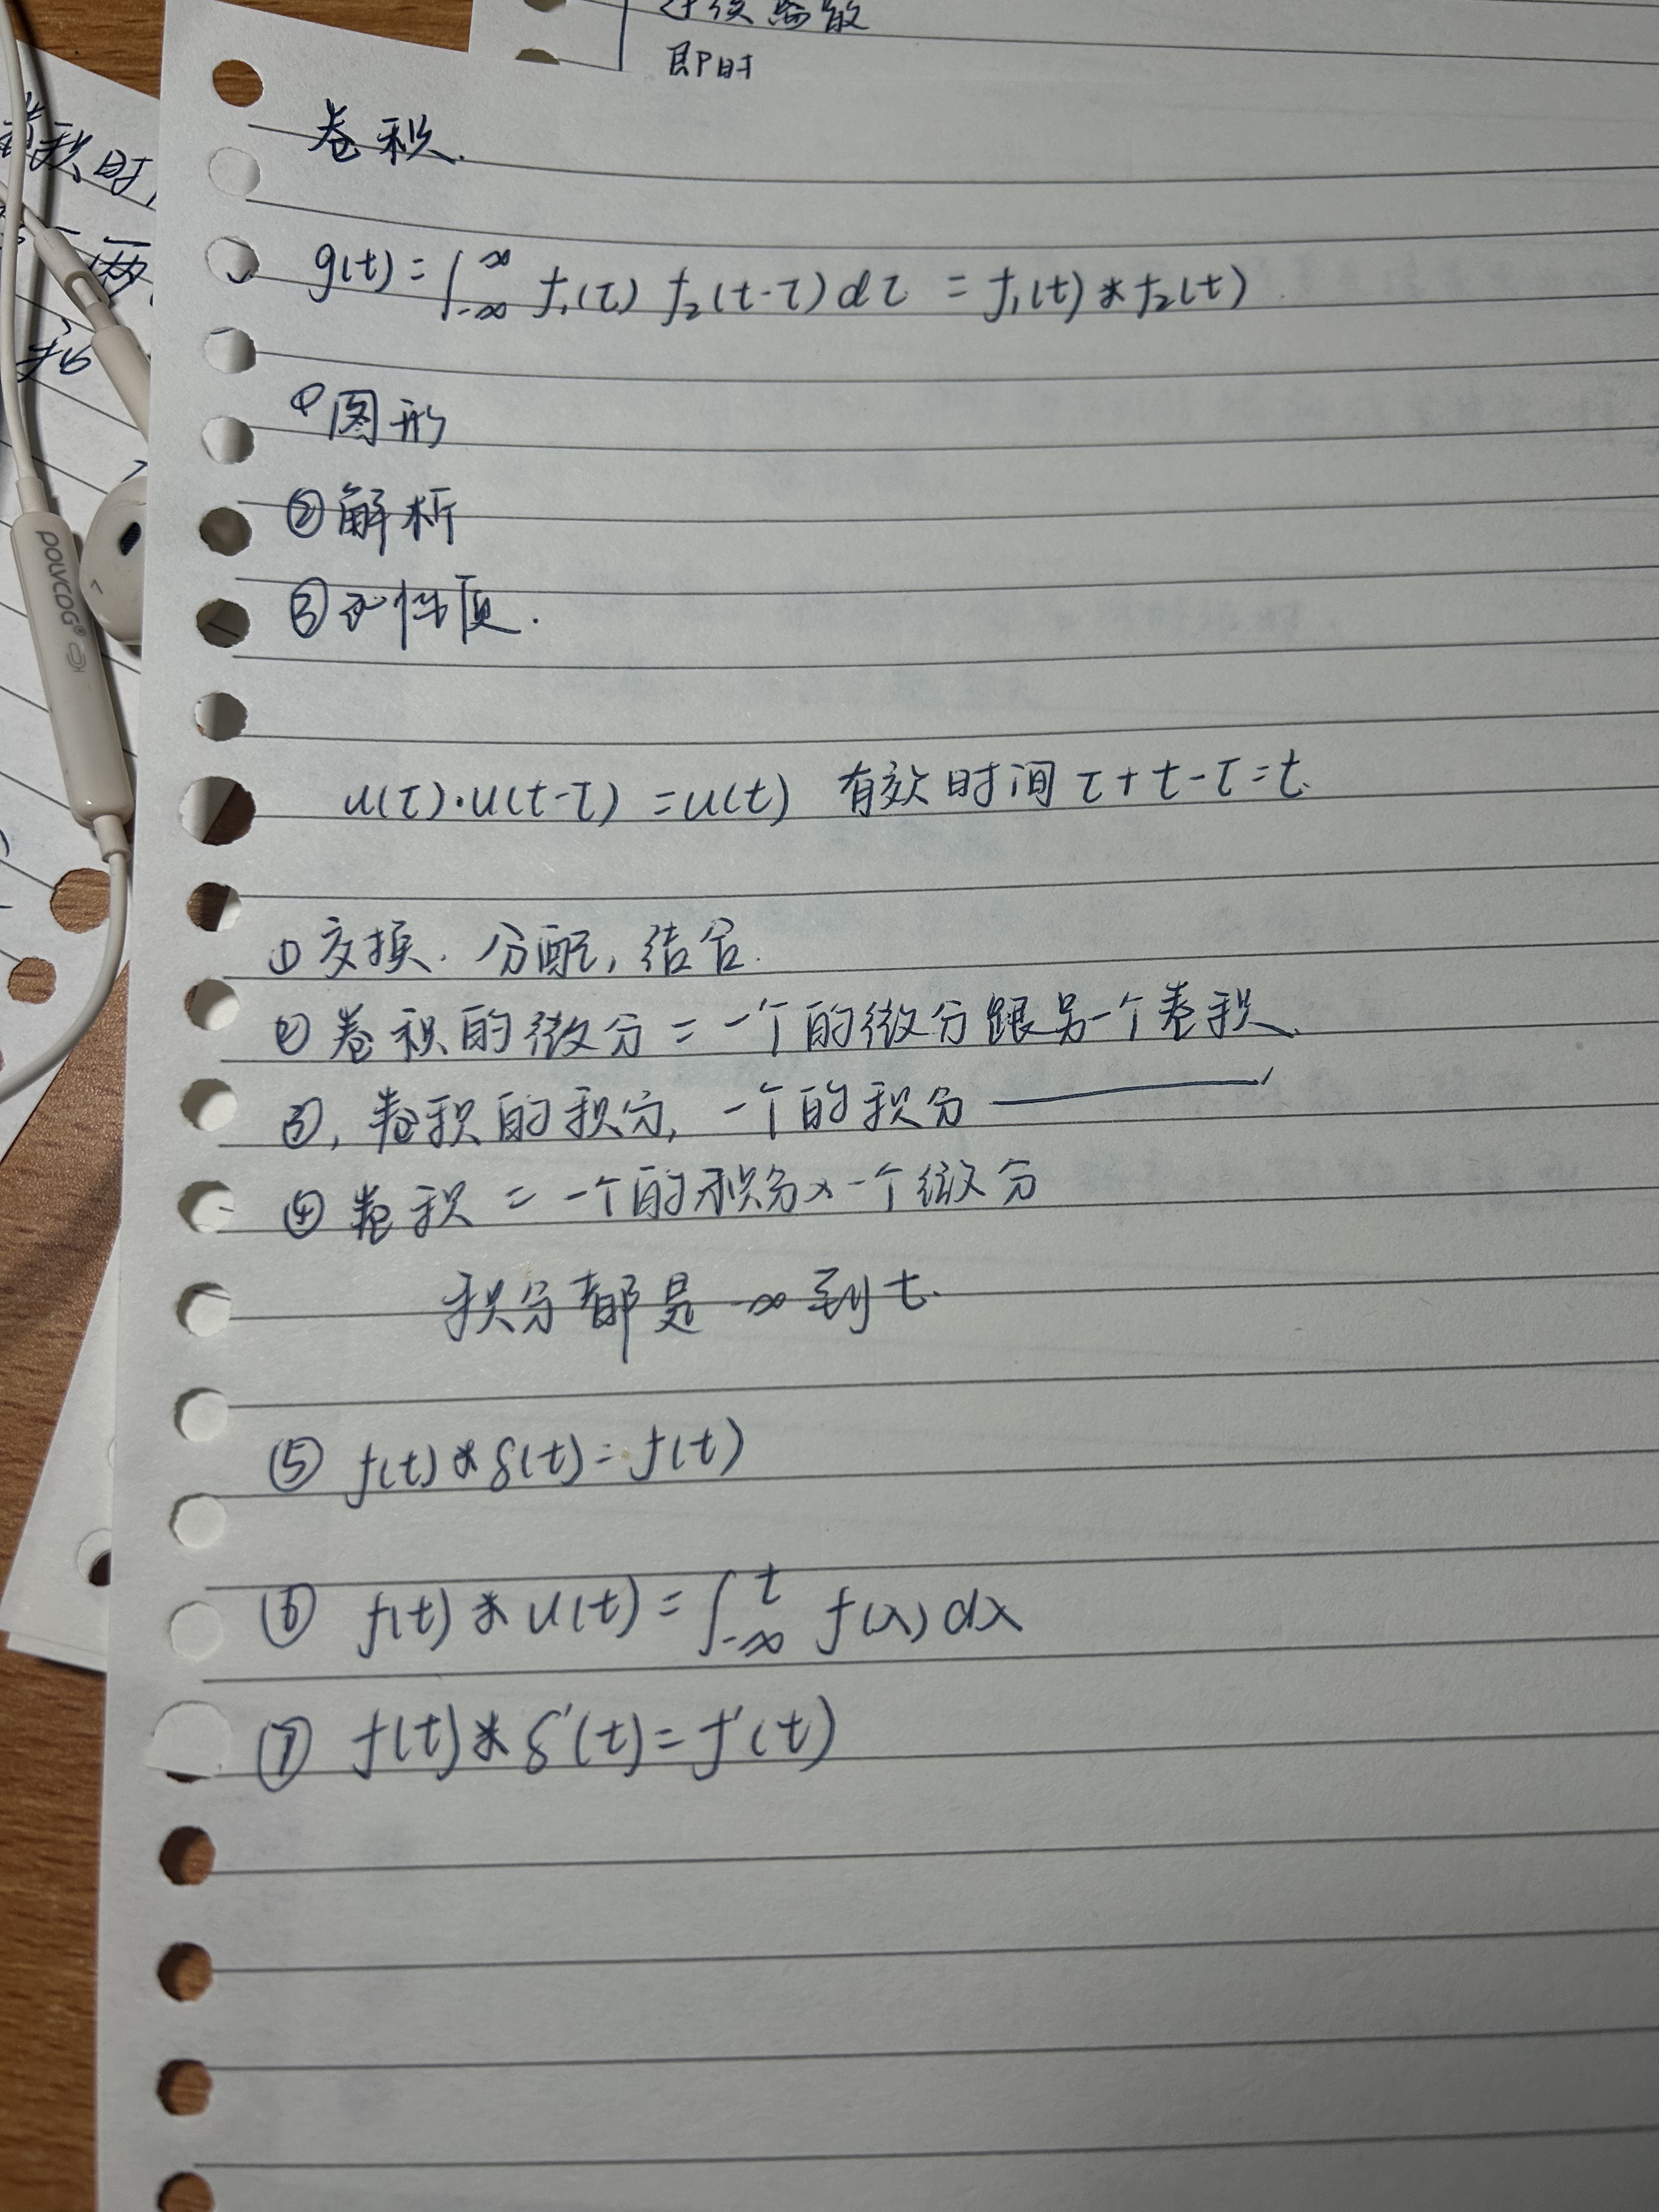 即时
卷积.
g(t) = ∫_{-∞}^{∞} f₁(τ) f₂(t-τ) dτ = f₁(t) * f₂(t)
① 图形
② 解析
③ 性质.
POLVCDG®
u(τ)·u(t-τ) = u(t) 有效时间 τ+t-τ=t.
① 交换. 分配, 结合.
② 卷积的微分 = 一个的微分跟另一个卷积.
③, 卷积的积分, 一个的积分 ————
④ 卷积 = 一个的积分 × 一个微分
积分都是 -∞ 到 t.
⑤ f(t) * δ(t) = f(t)
⑥ f(t) * u(t) = ∫_{-∞}^{t} f(λ) dλ
⑦ f(t) * δ'(t) = f'(t)